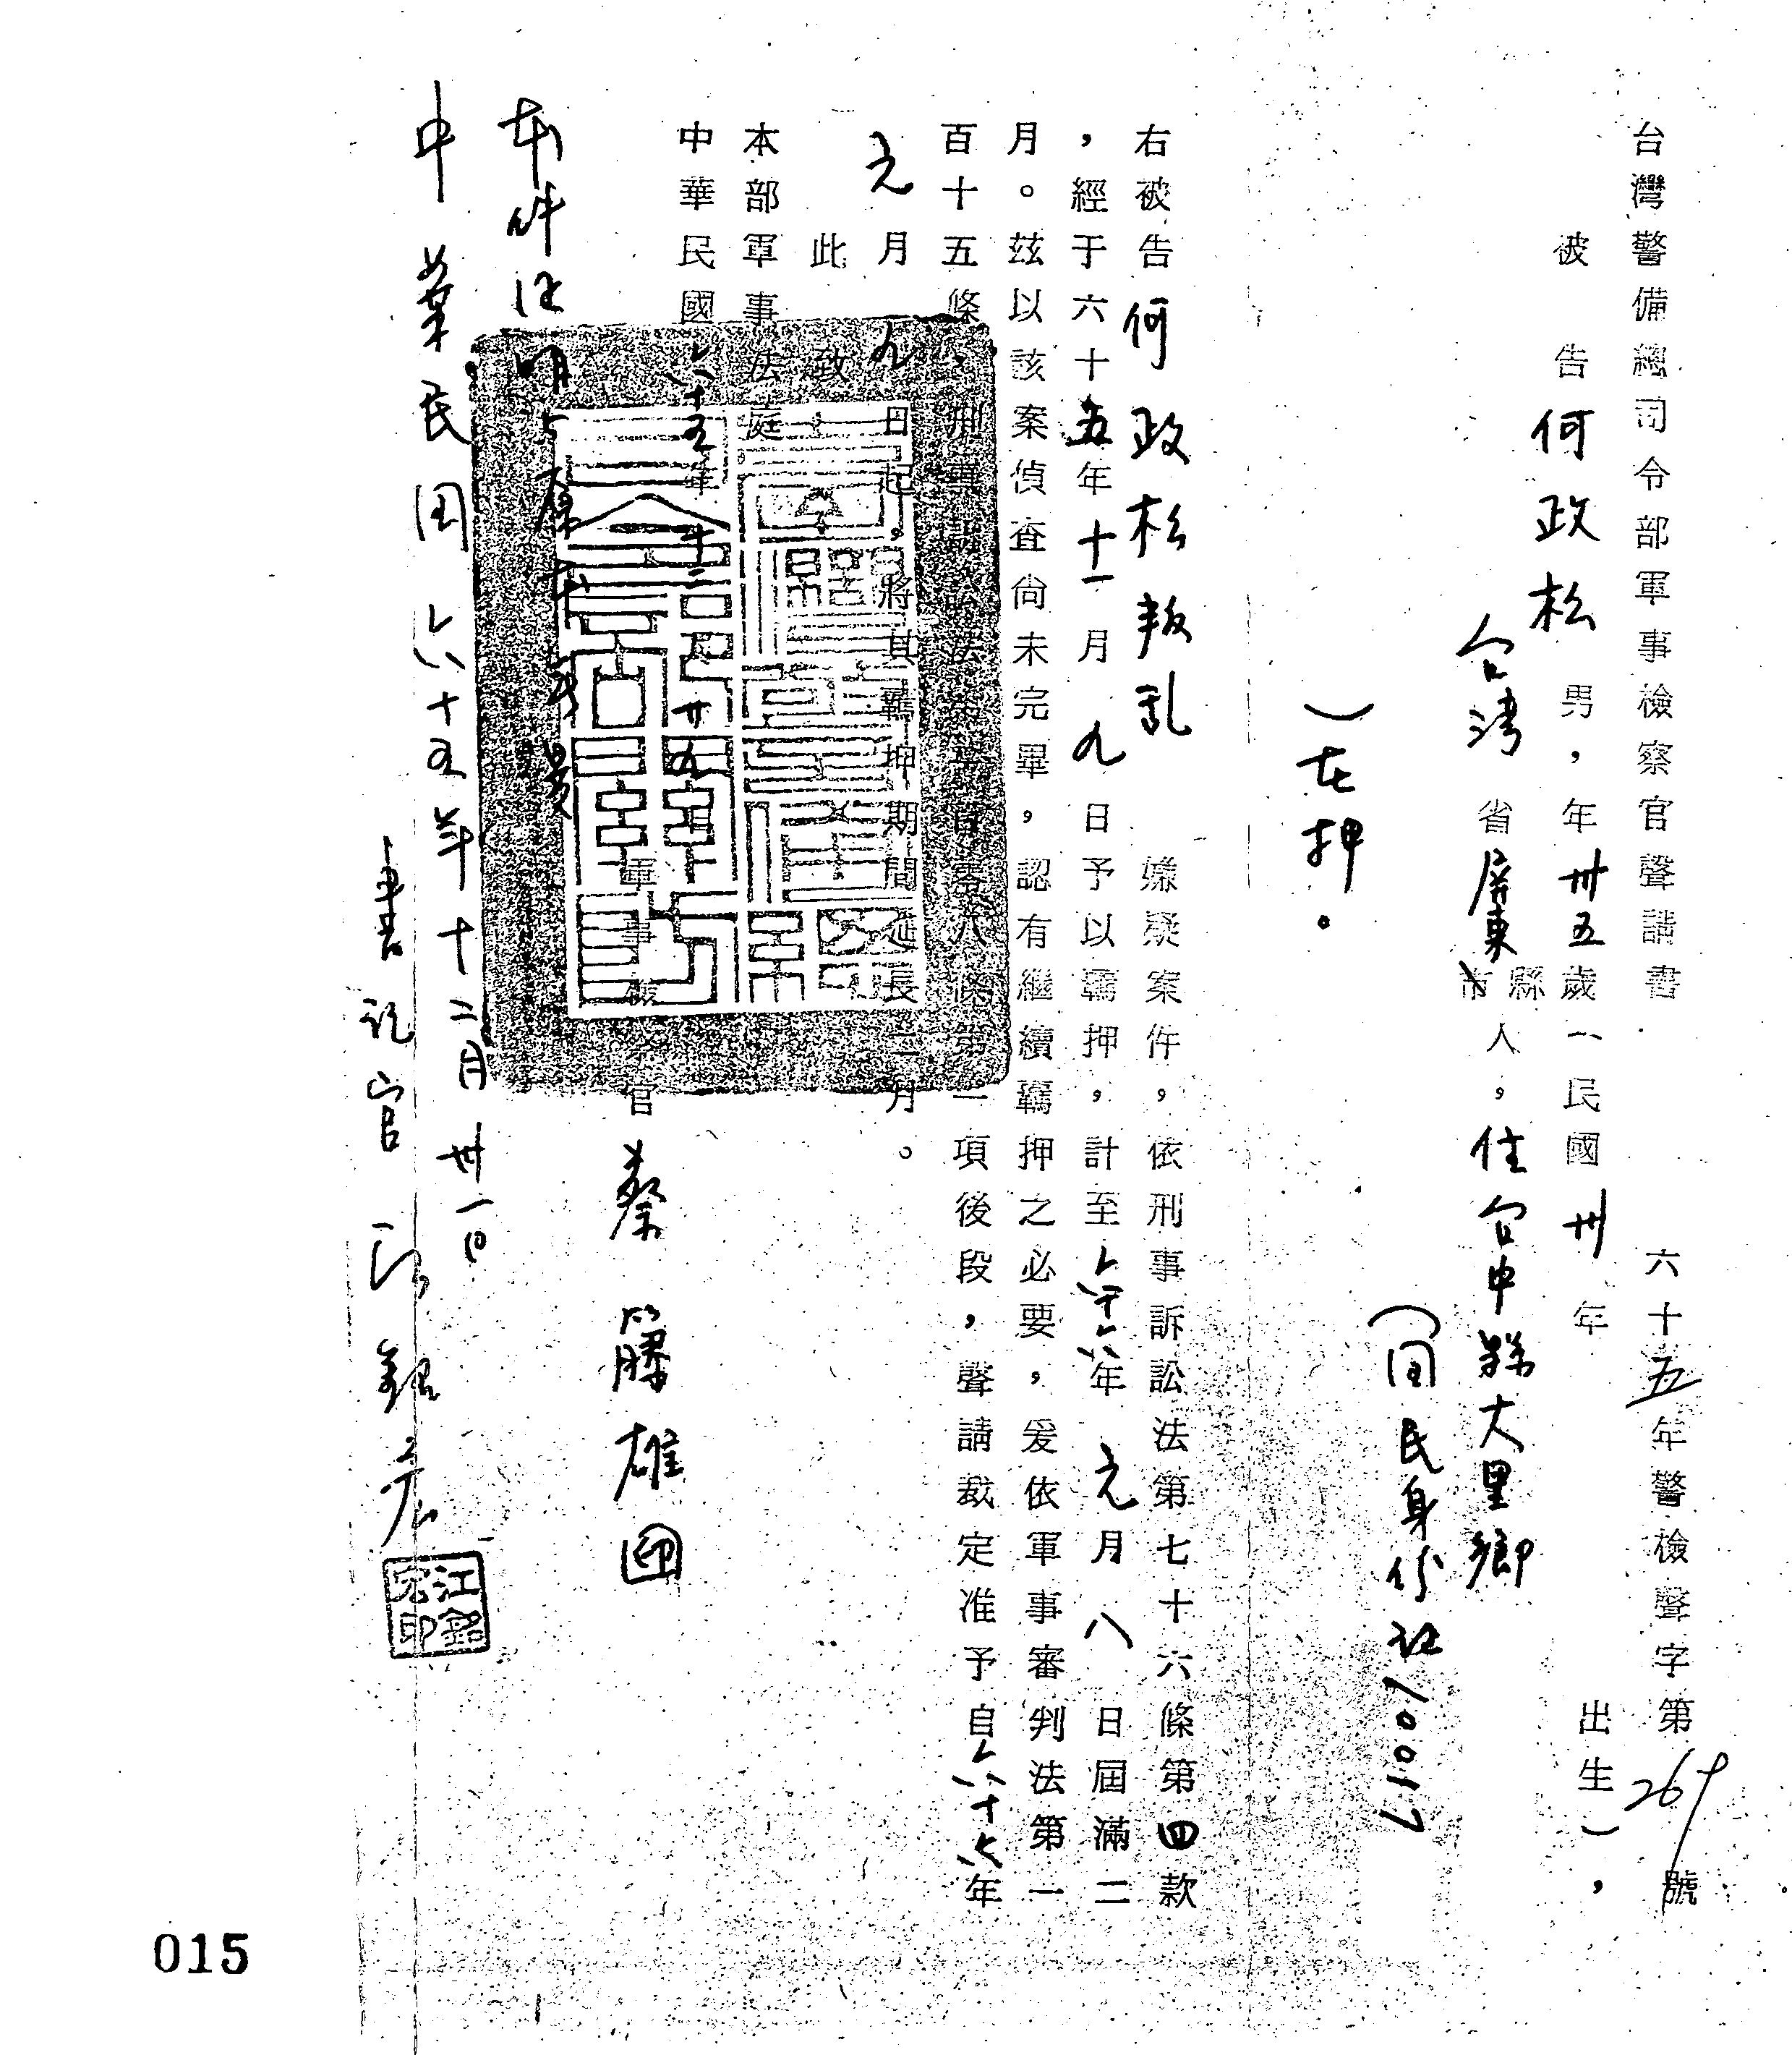 台灣警備總司令部軍事檢察官聲請書 六十五年警檢聲字第269號
被告何政松 男，年卅五歲（民國卅年 出生），
台灣省屏東縣市人，住台中縣大里鄉
（國民身份証
）在押。
右被告何政松叛乱嫌疑案件，依刑事訴訟法第七十六條第四款
，經于六十五年十一月九日予以羈押，計至六十六年元月八日屆滿二
月。茲以該案偵查尚未完畢，認有繼續羈押之必要，爰依軍事審判法第一
百十五條，刑事訴訟法第一百零八條第一項後段，聲請裁定准予自六十六年
元月九日起，將其羈押期間延長二月。
此 致
本部軍事法庭
中華民國六十五年十二月廿九日
軍事檢察官蔡籐雄印
本件证明与原本無異
中華民國六十五年十二月卅一日
書記官江銘宏
江銘宏印
015